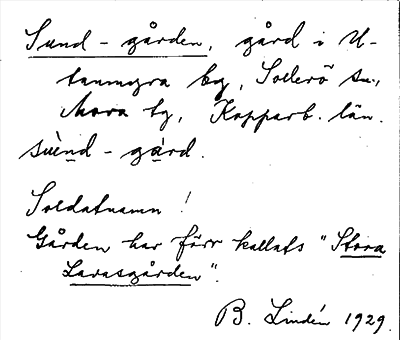 Sund-gården, gård i U-
tanmyra by, Sollerö sn.,
Mora tg, Kopparb. län.
sùe̱nd-gàrd.
Soldatnamn!
Gården har förr kallats "Stora
Larasgården".
B. Lindén 1929.